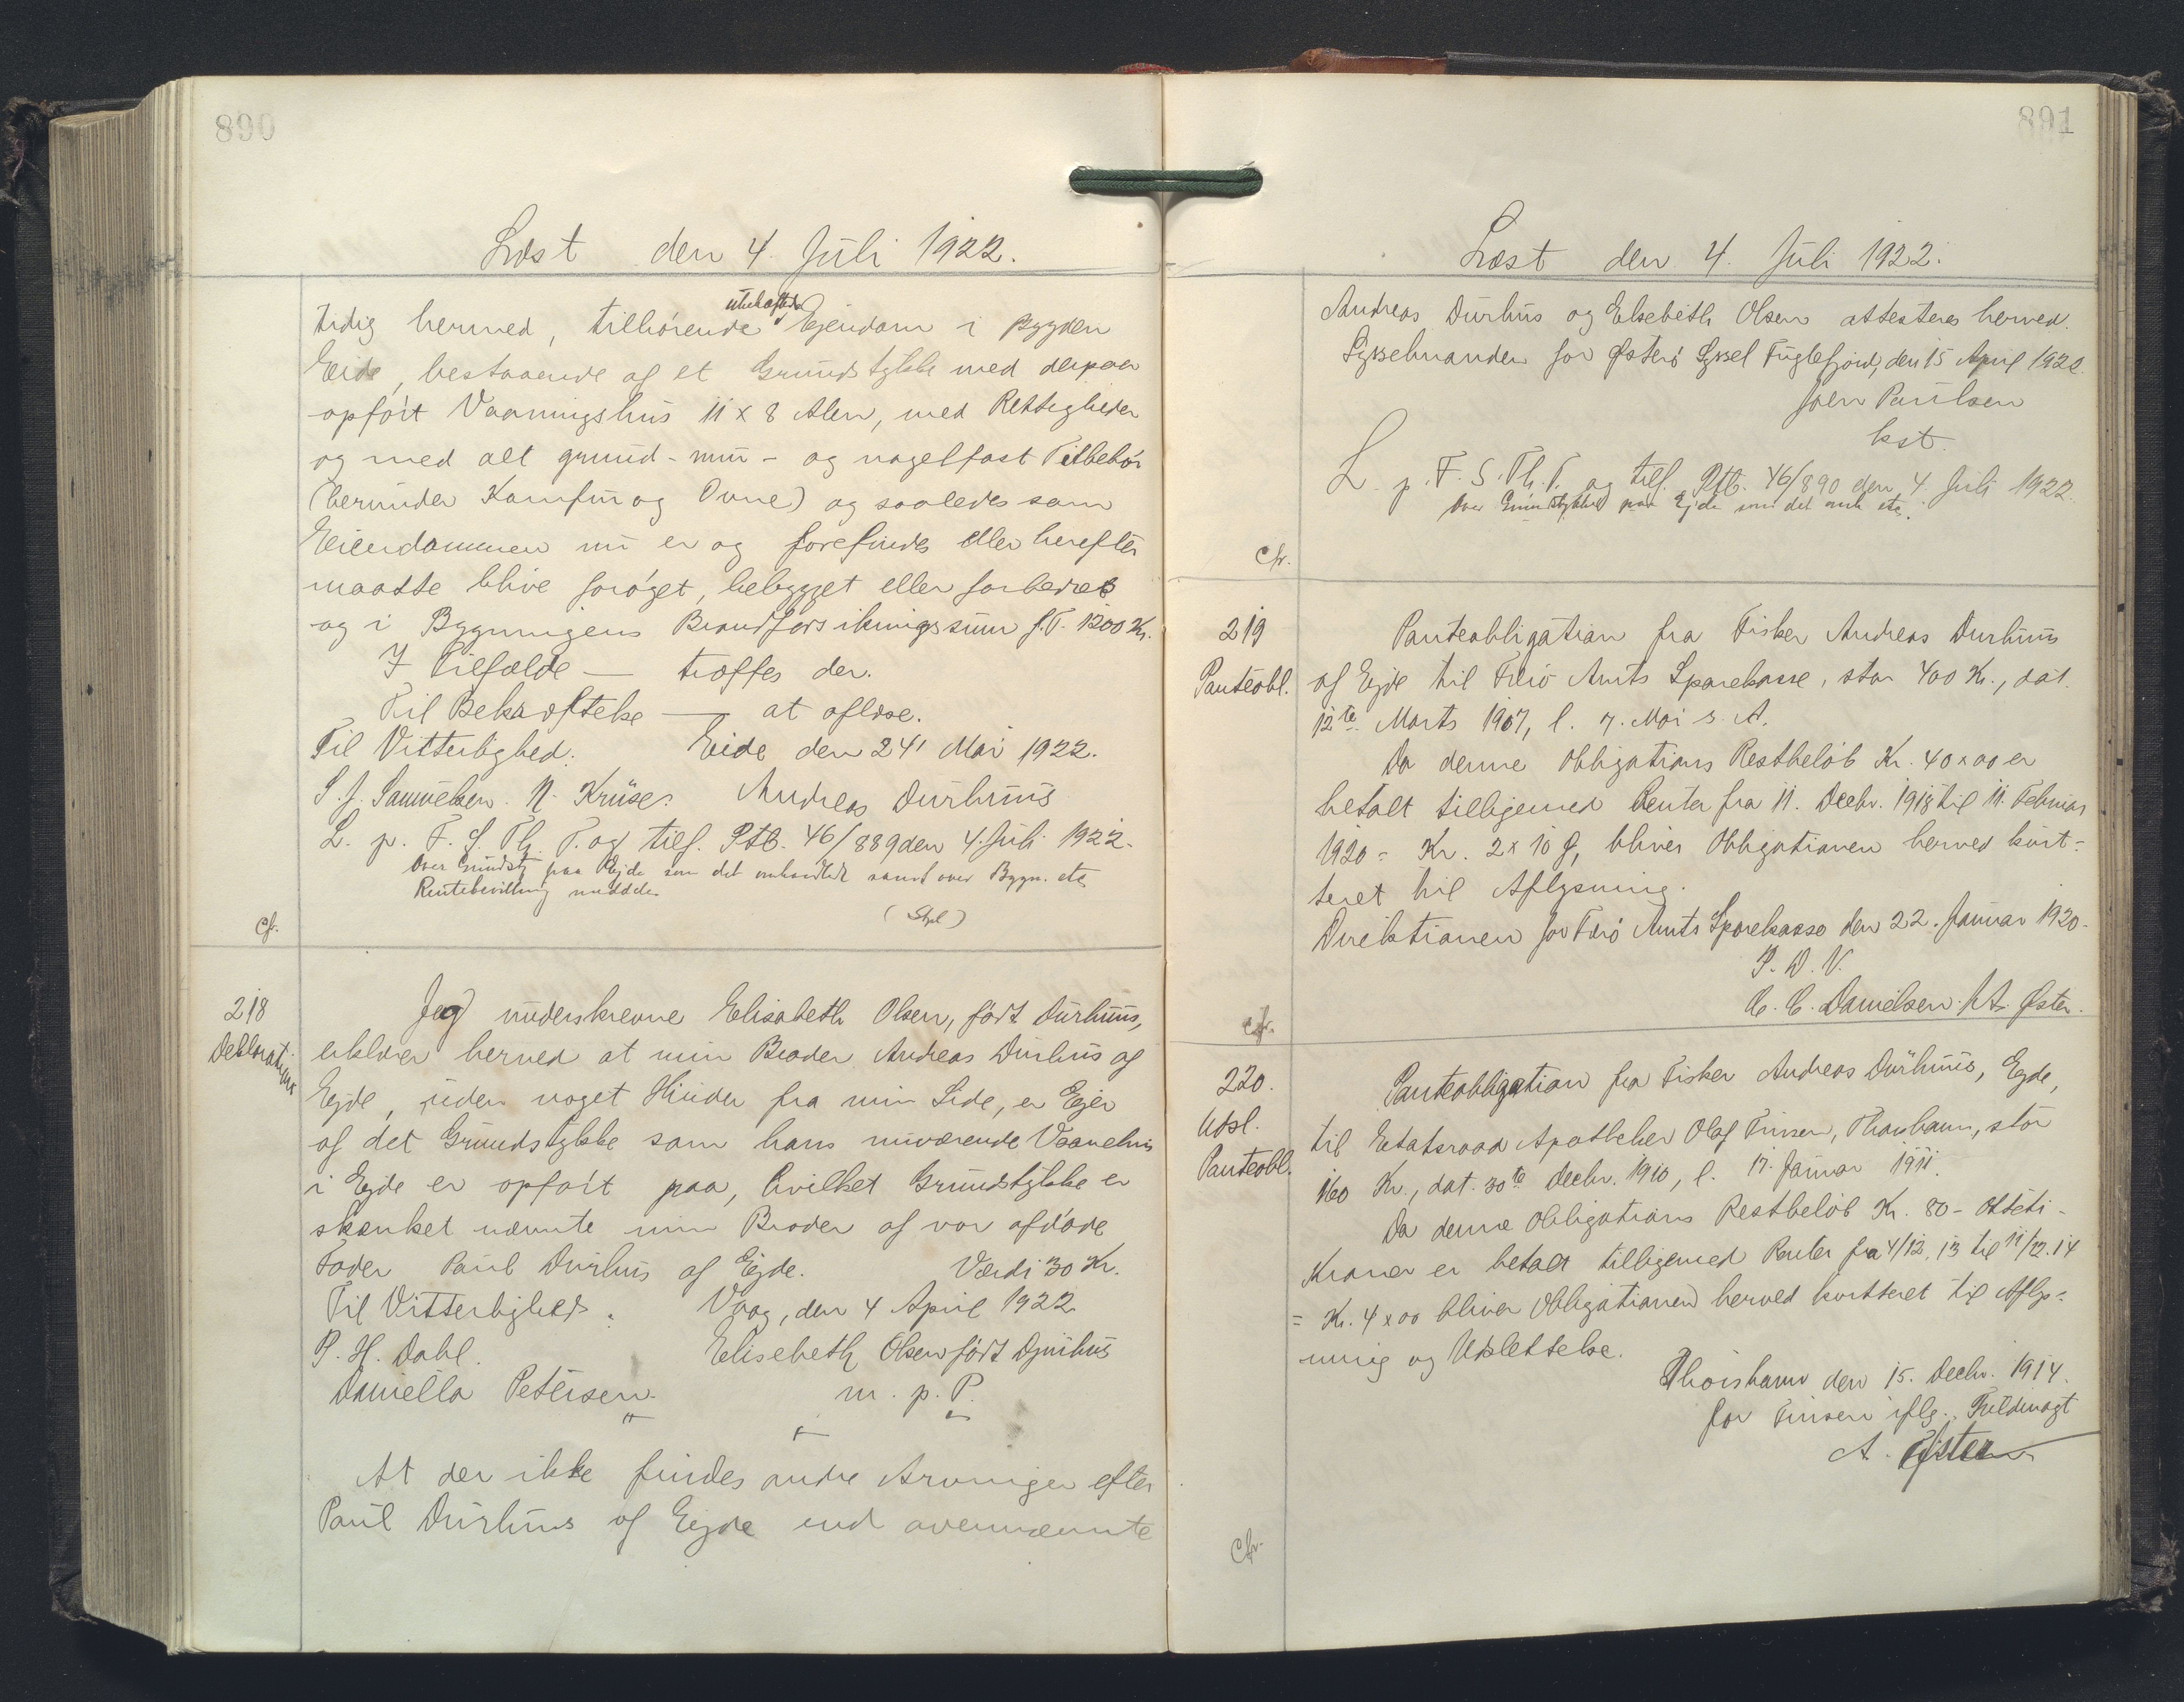 890
Læst den 4. Juli 1922.
tidig hermed, tilhørende ubehæftede Ejendom i Bygden
Eide, bestaaende af et Grundstykke med derpaa
opført Vaaningshus 11 x 8 Alen, med Rettigheder
og med alt grund- mur- og nagelfast Tilbehør
(herunder Komfur og Ovne) og saaledes som
Eiendommen nu er og forefindes eller herefter
maatte blive forøget, bebygget eller forbedret
og i Bygningens Brandforsikringssum f.T. 1200 Kr.
I Tilfælde — træffes der.
Til Bekræftelse — at aflæse.
Til Vitterlighed: Eide den 24' Mai 1922.
S. J. Samuelsen. N. Kruse. Andreas Durhuus
L. p. F. S. Th. T. og tilf. Ptb. 46/889 den 4. Juli 1922.
Over Grundst. paa Ejde som det omhandlede samt over Bygn. etc.
Rentebevilling meddelt.
cfr.
218
Deklaration
Jeg underskrevne Elisabeth Olsen, født Durhuus,
erklærer herved at min Broder Andreas Durhus af
Ejde, uden noget Hinder fra min Side, er Ejer
af det Grundstykke som hans nuværende Vaanehus
i Ejde er opført paa, hvilket Grundstykke er
skænket nævnte min Broder af vor afdøde
Fader Paul Durhus af Ejde. Værdi 30 Kr.
Til Vitterlighed: Vaag, den 4 April 1922
P. H. Dahl. Elisebeth Olsen født Djurhus
Daniella Petersen. m. p. P.
At der ikke findes andre Arvinger efter
Paul Durhuus af Ejde end ovennævnte
891
Læst den 4. Juli 1922.
Andreas Durhus og Elsebeth Olsen attesteres herved.
Sysselmanden for Østerø Syssel Fuglefjord, den 15 April 1922.
Joen Paulsen
kst.
L. p. F. S. Th. T. og tilf. Ptb. 46/890 den 4. Juli 1922.
Over Grundstykket paa Ejde som det omh. etc.
Cfr.
219
Panteobl.
Panteobligation fra Fisker Andreas Durhuus
af Ejde til Færø Amts Sparekasse, stor 400 Kr., dat.
12te Marts 1907, l. 7. Mai s. A.
Da denne Obligations Restbeløb Kr. 40 x 00 er
betalt tilligemed Renter fra 11. Decbr. 1918 til 11. Februar
1920 = Kr. 2 x 10 Ø, bliver Obligationen herved kvit-
teret til Aflysning.
Direktionen for Færø Amts Sparekasse den 22. Januar 1920.
P. D. V.
C. C. Danielsen. A. Øster.
Cfr.
220.
Udsl.
Panteobl.
Panteobligation fra Fisker Andreas Durhuus, Ejde,
til Etatsraad Apotheker Olaf Finsen, Thorshavn, stor
160 Kr., dat. 30te Decbr. 1910, l. 17. Januar 1911.
Da denne Obligations Restbeløb Kr. 80 - otteti -
Kroner er betalt tilligemed Renter fra 4/12. 13 til 11/12. 14
= Kr. 4 x 00 bliver Obligationen herved kvitteret til Aflys-
ning og Udslettelse.
Thorshavn den 15. Decbr. 1914.
for Finsen iflg. Fuldmagt
A. Øster
Cfr.